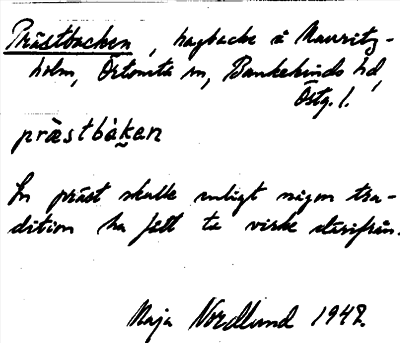 Prästbacken, hagbacke å Mauritz-
holm, Örtomta sn, Bankekinds hd,
Östg. l.
præstbàk̯an
En präst skulle enligt någon tra-
dition ha fått ta virke därifrån.
Maja Nordlund 1948.